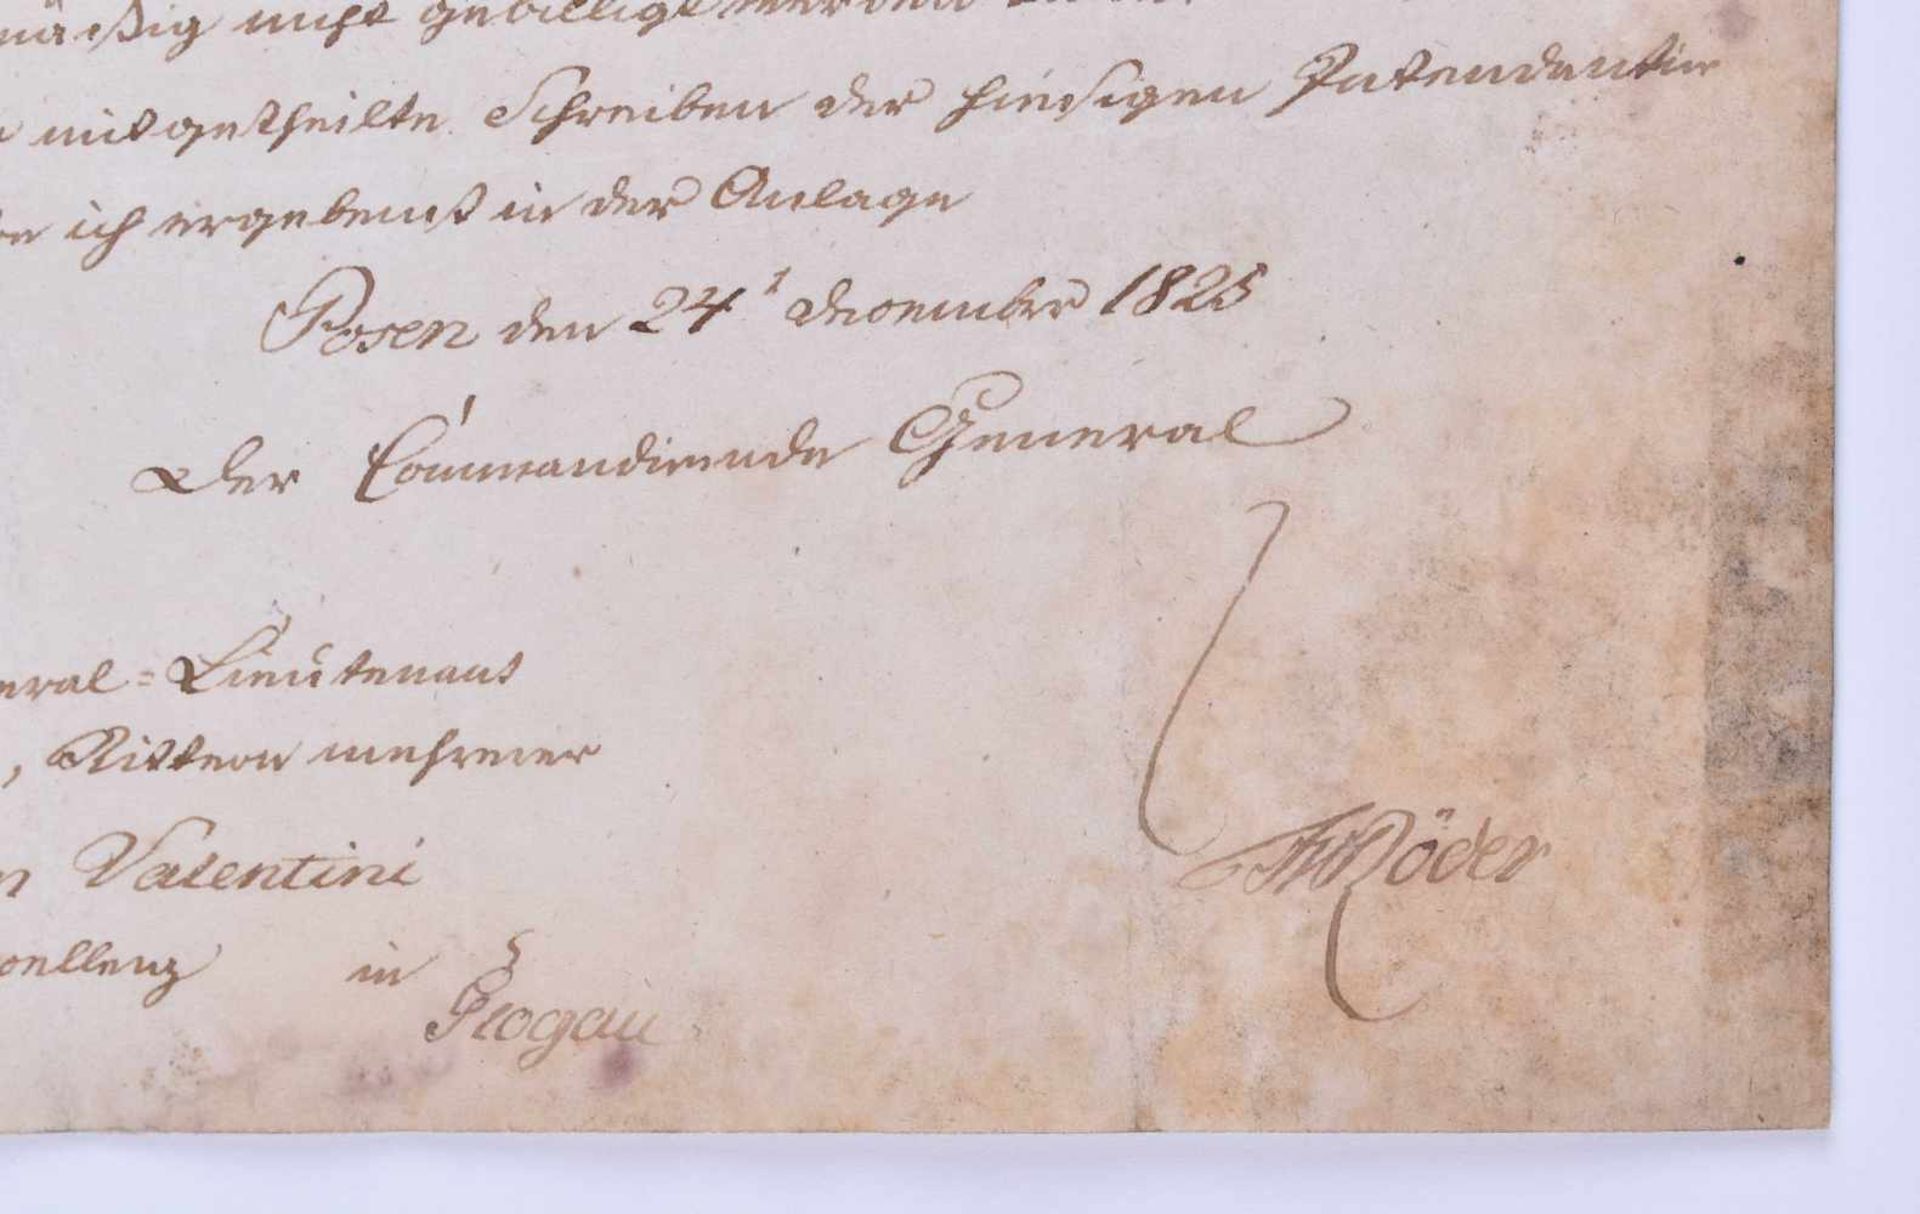 mäßig nicht gebilligt werden
mitgetheilte Schreiben der hiesigen Intendantur
ich ergebenst in der Anlage
Posen den 24t December 1825
Der Commandirende General
eral=Lieutenant
, Rittern mehrerer
n Valentini
cellenz in
Glogau
Röder